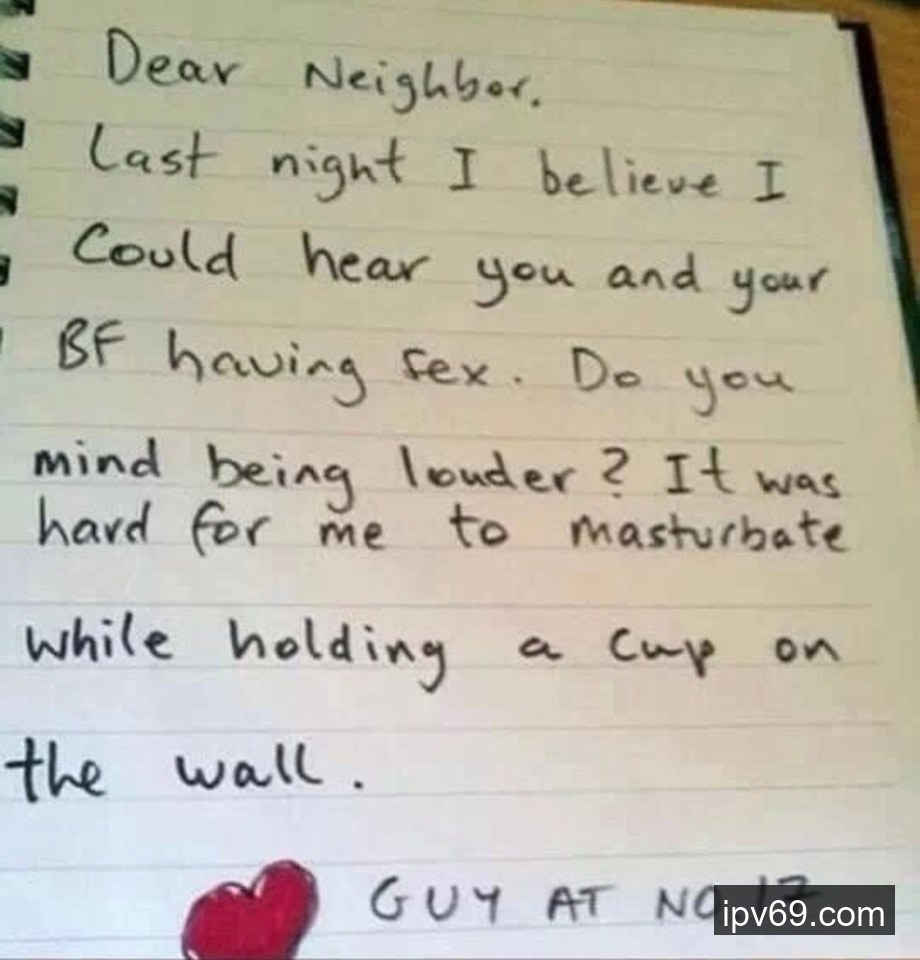 Dear Neighbor.
Last night I believe I
Could hear you and your
BF having sex. Do you
mind being louder? It was
hard for me to masturbate
while holding a cup on
the wall.
GUY AT NO 17
ipv69.com